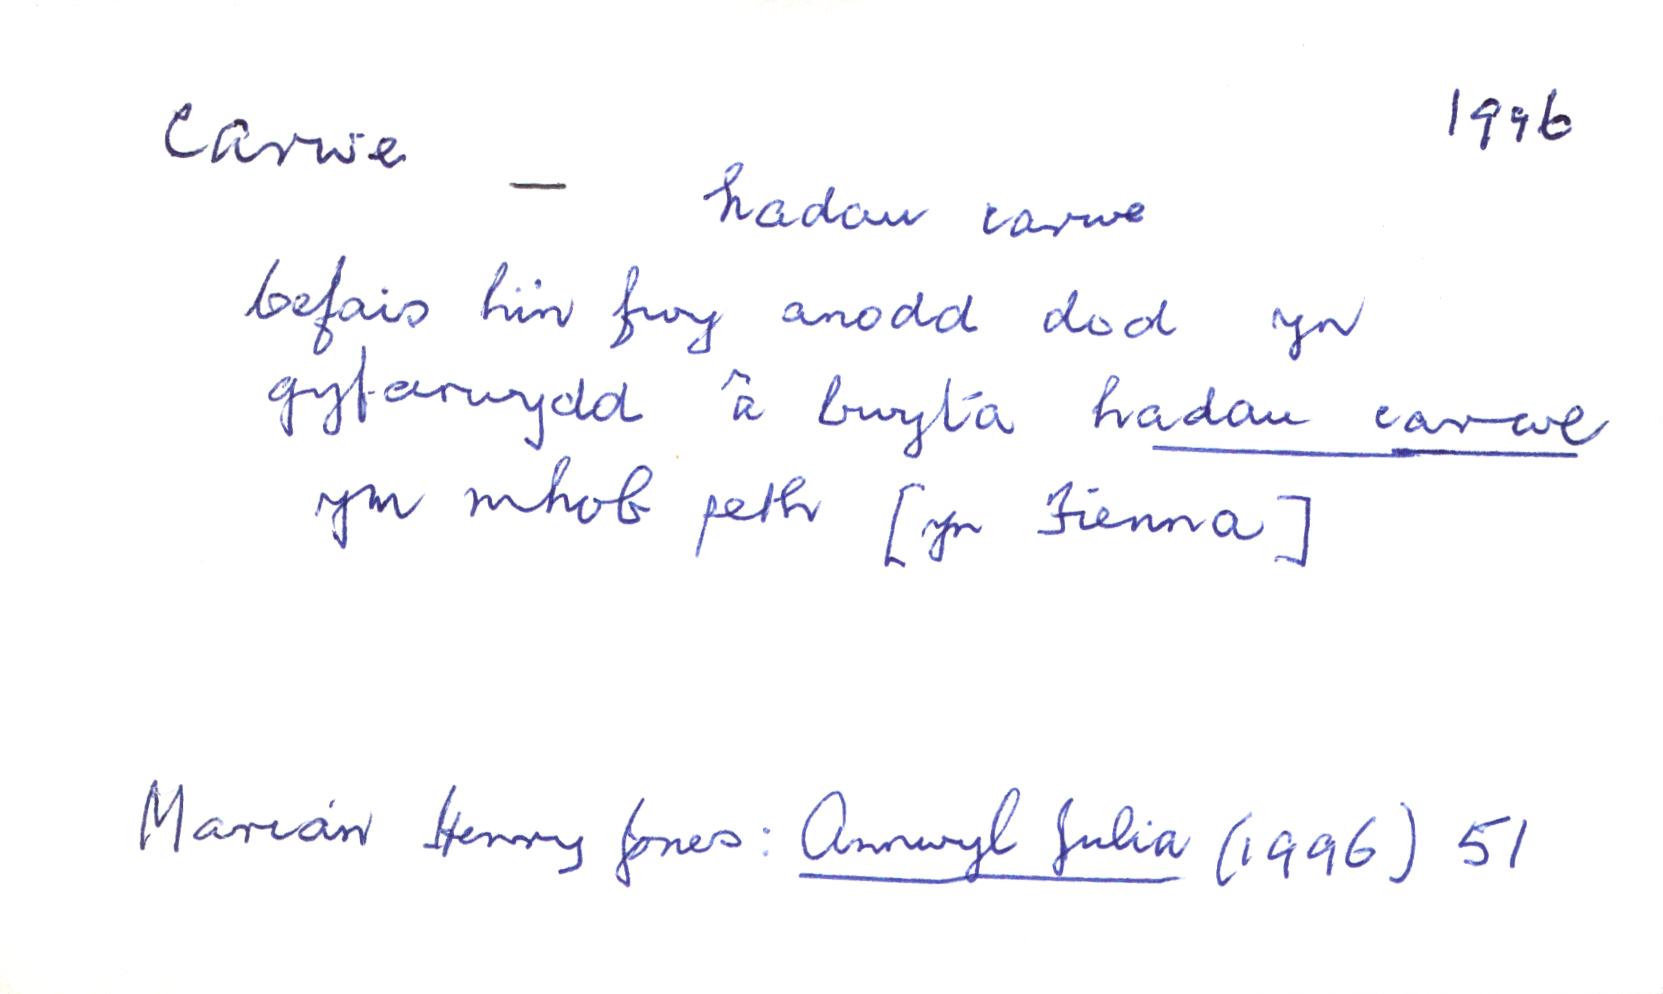 Carwe 1996
— hadau carwe
befais hi'n fwy anodd dod yn
gyfarwydd â bwyta hadau carwe
ym mhob peth [yn Fienna]
Marian Henry Jones: Annwyl Julia (1996) 51